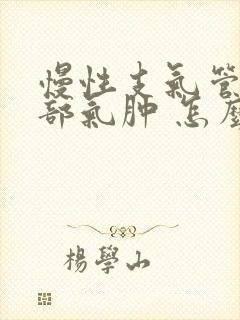 慢性支氣管
部氣肿 怎麼
楊學山